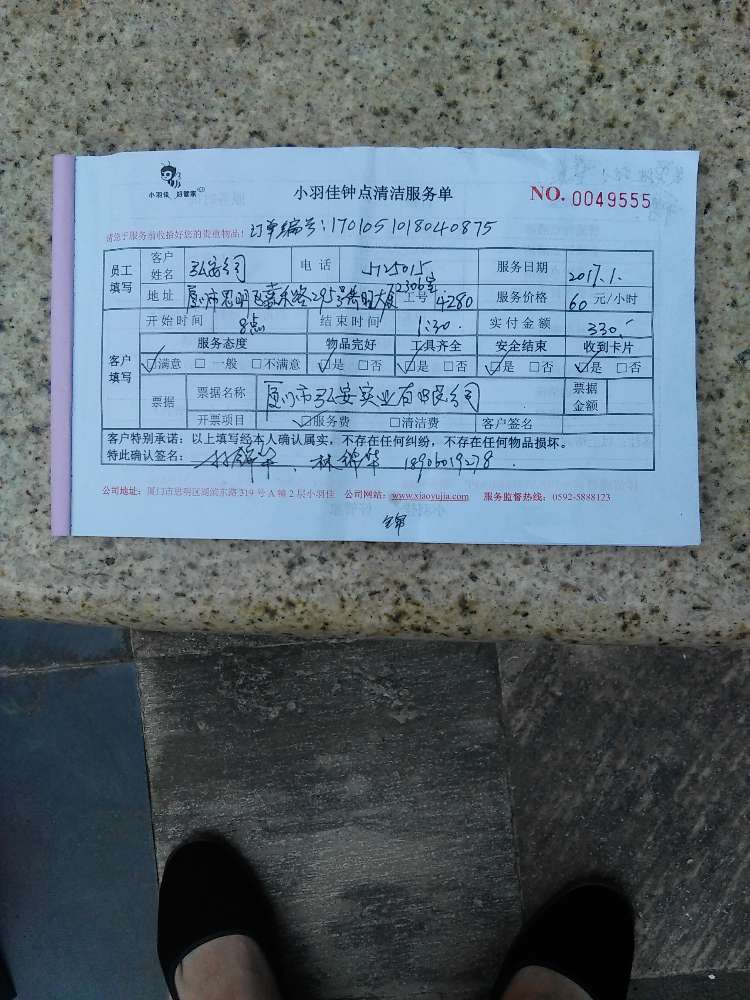 小羽佳 好管家
小羽佳钟点清洁服务单
NO. 0049555
请您于服务前收拾好您的贵重物品！
订单编号：1701051018040875
员工填写
客户姓名 弘安公司 电话 5725015 服务日期 2017.1.
地址 厦门市思明区嘉禾路295号 2306室 工号 4280 服务价格 60 元/小时
客户填写
开始时间 8点 结束时间 1:30. 实付金额 330.-
服务态度 物品完好 工具齐全 安全结束 收到卡片
☑满意 □一般 □不满意 ☑是 □否 ☑是 □否 ☑是 □否 ☑是 □否
票据 票据名称 厦门市弘安实业有限公司 票据金额
开票项目 ☑服务费 □清洁费 客户签名
客户特别承诺：以上填写经本人确认属实，不存在任何纠纷，不存在任何物品损坏。
特此确认签名： 林锦华 、林锦华
公司地址：厦门市思明区湖滨东路 319 号 A 幢 2 层小羽佳 公司网站：www.xiaoyujia.com 服务监督热线：0592-5888123